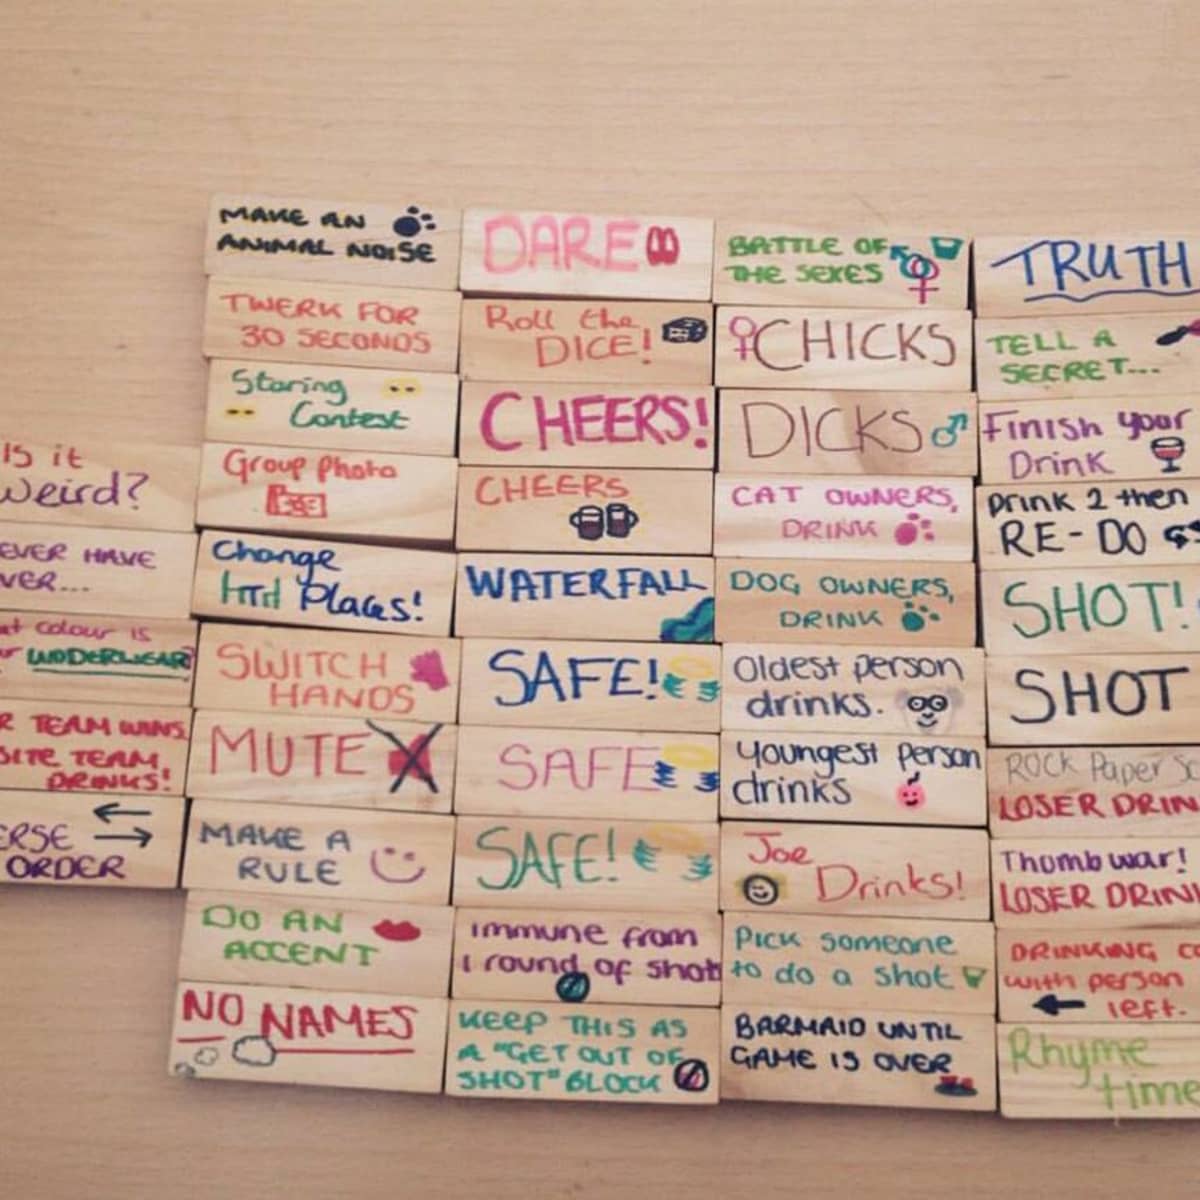 Is it
weird?
EVER HAVE
VER...
at colour is
UNDERWEAR?
R TEAM WINS,
SITE TEAM
DRINKS!
ERSE
ORDER
MAKE AN
ANIMAL NOISE
TWERK FOR
30 SECONDS
Staring
Contest
Group Photo
Change
Places!
SWITCH
HANDS
MUTE
MAKE A
RULE
DO AN
ACCENT
NO NAMES
DARE
Roll the
DICE!
CHEERS!
CHEERS
WATERFALL
SAFE!
SAFE
SAFE!
immune from
1 round of shots
KEEP THIS AS
A "GET OUT OF
SHOT" BLOCK
BATTLE OF
THE SEXES
CHICKS
DICKS
CAT OWNERS,
DRINK
DOG OWNERS,
DRINK
Oldest person
drinks.
Youngest person
drinks
Joe
Drinks!
Pick someone
to do a shot
BARMAID UNTIL
GAME IS OVER
TRUTH
TELL A
SECRET...
Finish your
Drink
Drink 2 then
RE-DO
SHOT!
SHOT
ROCK Paper Sc
LOSER DRIN
Thumb war!
LOSER DRIN
DRINKING CO
with person
left.
Rhyme
time